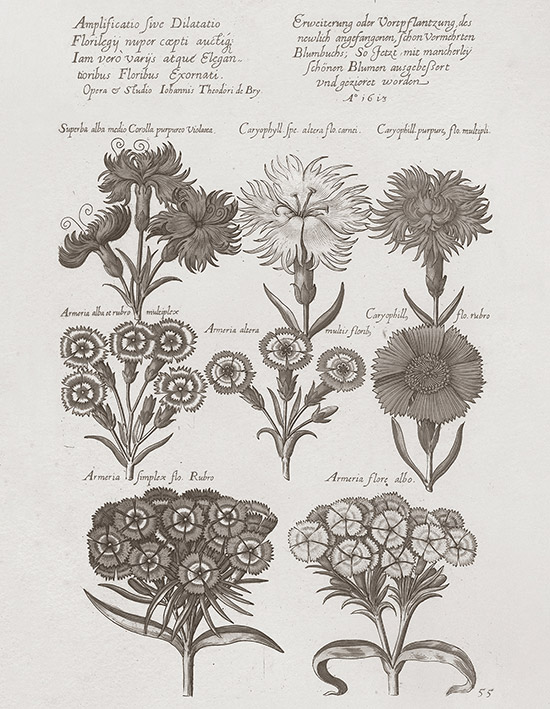 Amplificatio sive Dilatatio
Florilegij nuper cœpti auctiq;
Iam vero varijs atque Elegan-
tioribus Floribus Exornati.
Opera & Studio Iohannis Theodori de Bry.
Erweiterung oder Vortpflantzung, des
newlich angefangenen, schon vermehrten
Blumbuchs; So Jetzt, mit mancherleÿ
schönen Blumen ausgebeßert
vnd gezieret worden
Aº 1613
Superba alba medio Corolla purpureo Violacea.
Caryophyll. spe. altera flo. carnei.
Caryophill. purpure, flo. multipli.
Armeria alba et rubro multiplex
Armeria altera multis florib,
Caryophill, flo. rubro
Armeria simplex flo. Rubro
Armeria flore albo.
55